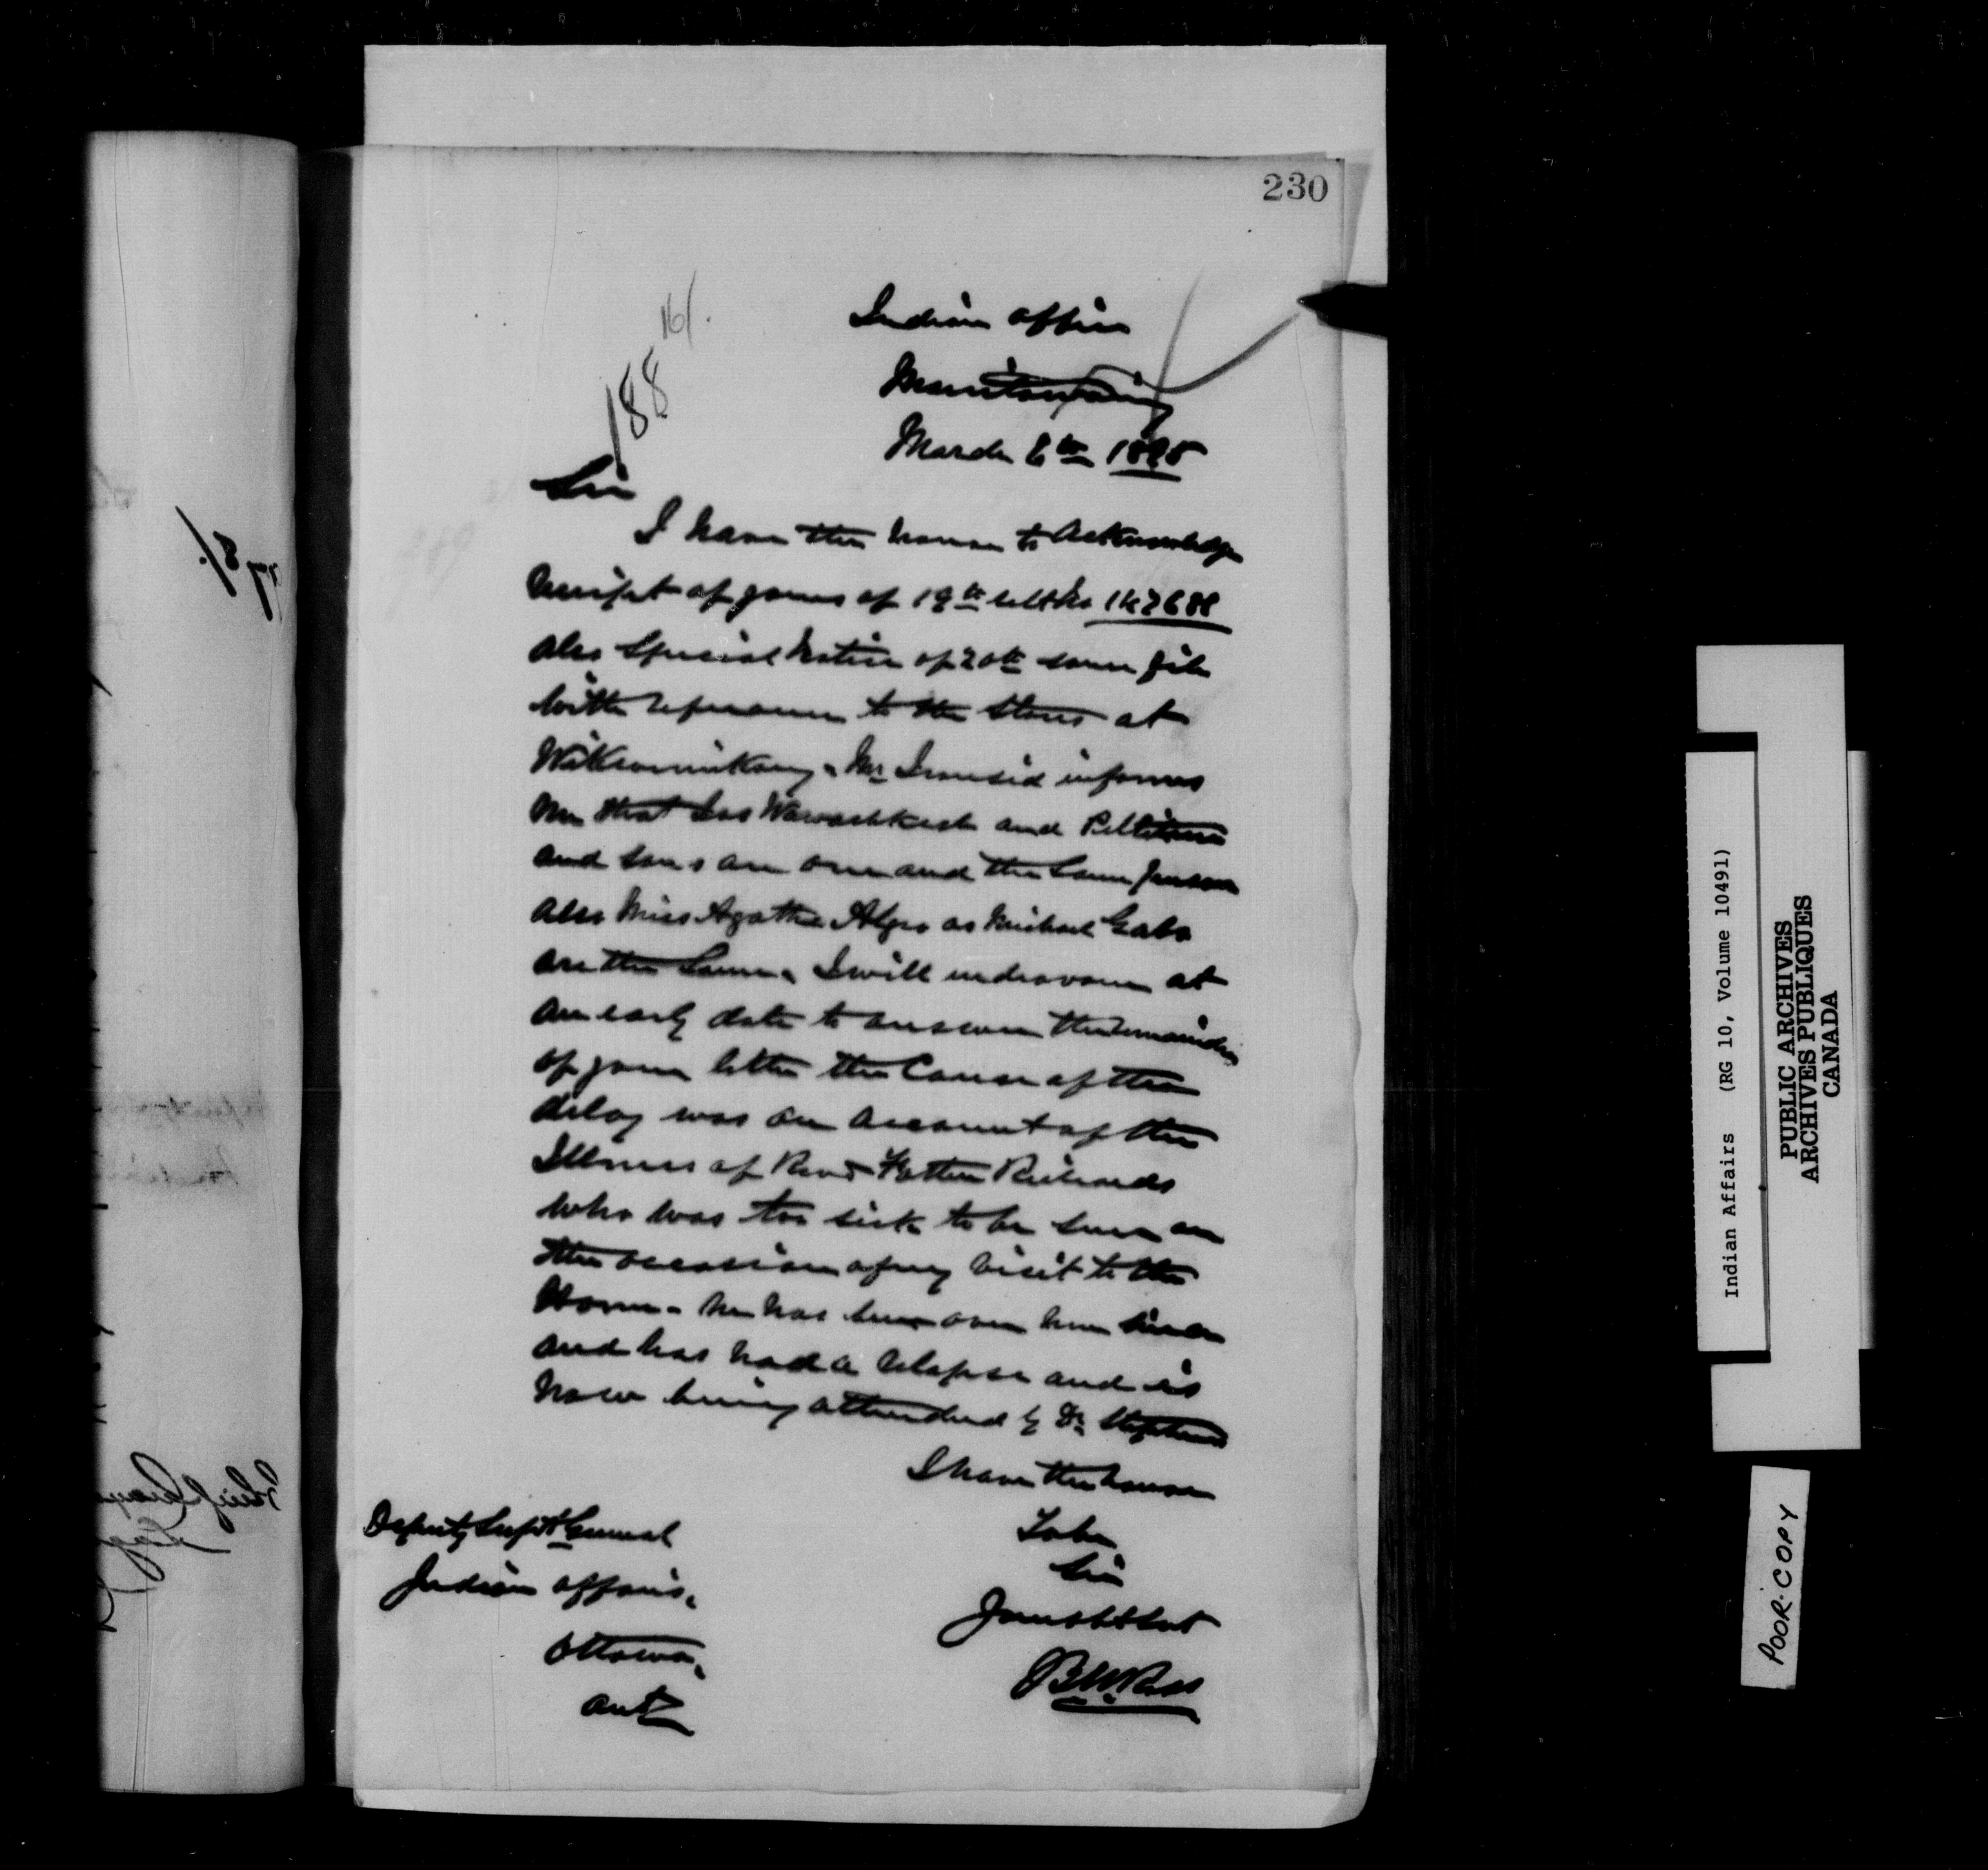 230
188
161.
Indian Office
Manitowaning
March 6th 1895
Sir
I have the honor to acknowledge
receipt of yours of 19th ulto No
also Special Notice of 20th same file
with reference to the stores at
Wikwemikong. Mr Ironsid informs
me that Jos Wawashkesh and Pelletier
and Sons are one and the same person
also Miss Agatha as Michael
are the same. I will endeavour at
an early date to answer the remainder
of your letter the cause of the
delay was on account of the
Illness of Revd Father Richards
who was too sick to be seen on
the occasion of my visit to the
Home - he has been over here since
and has had a relapse and is
now being attended by Dr Stephens
I have the honor
To be
Sir
Your obt Svt
B W Ross
Deputy Supt General
Indian Affairs.
Ottawa.
Ont
Indian Affairs (RG 10, Volume 10491)
PUBLIC ARCHIVES
ARCHIVES PUBLIQUES
CANADA
POOR COPY